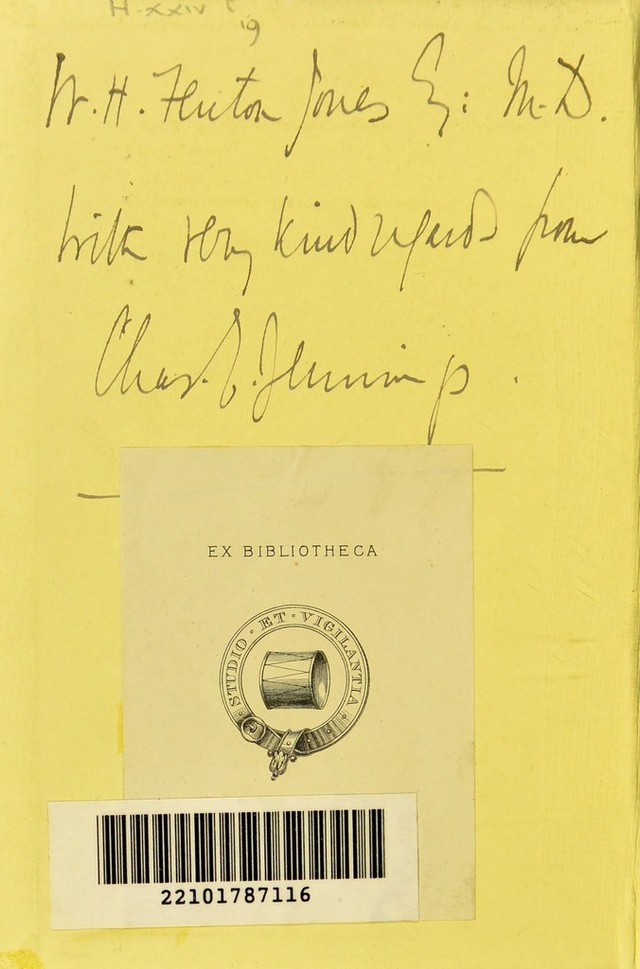 H.xxiv
19
W.H. Fenton Jones Esq: M.D.
with very kind regards from
Chas. E. Jennings.
EX BIBLIOTHECA
STUDIO · ET · VIGILANTIA
22101787116